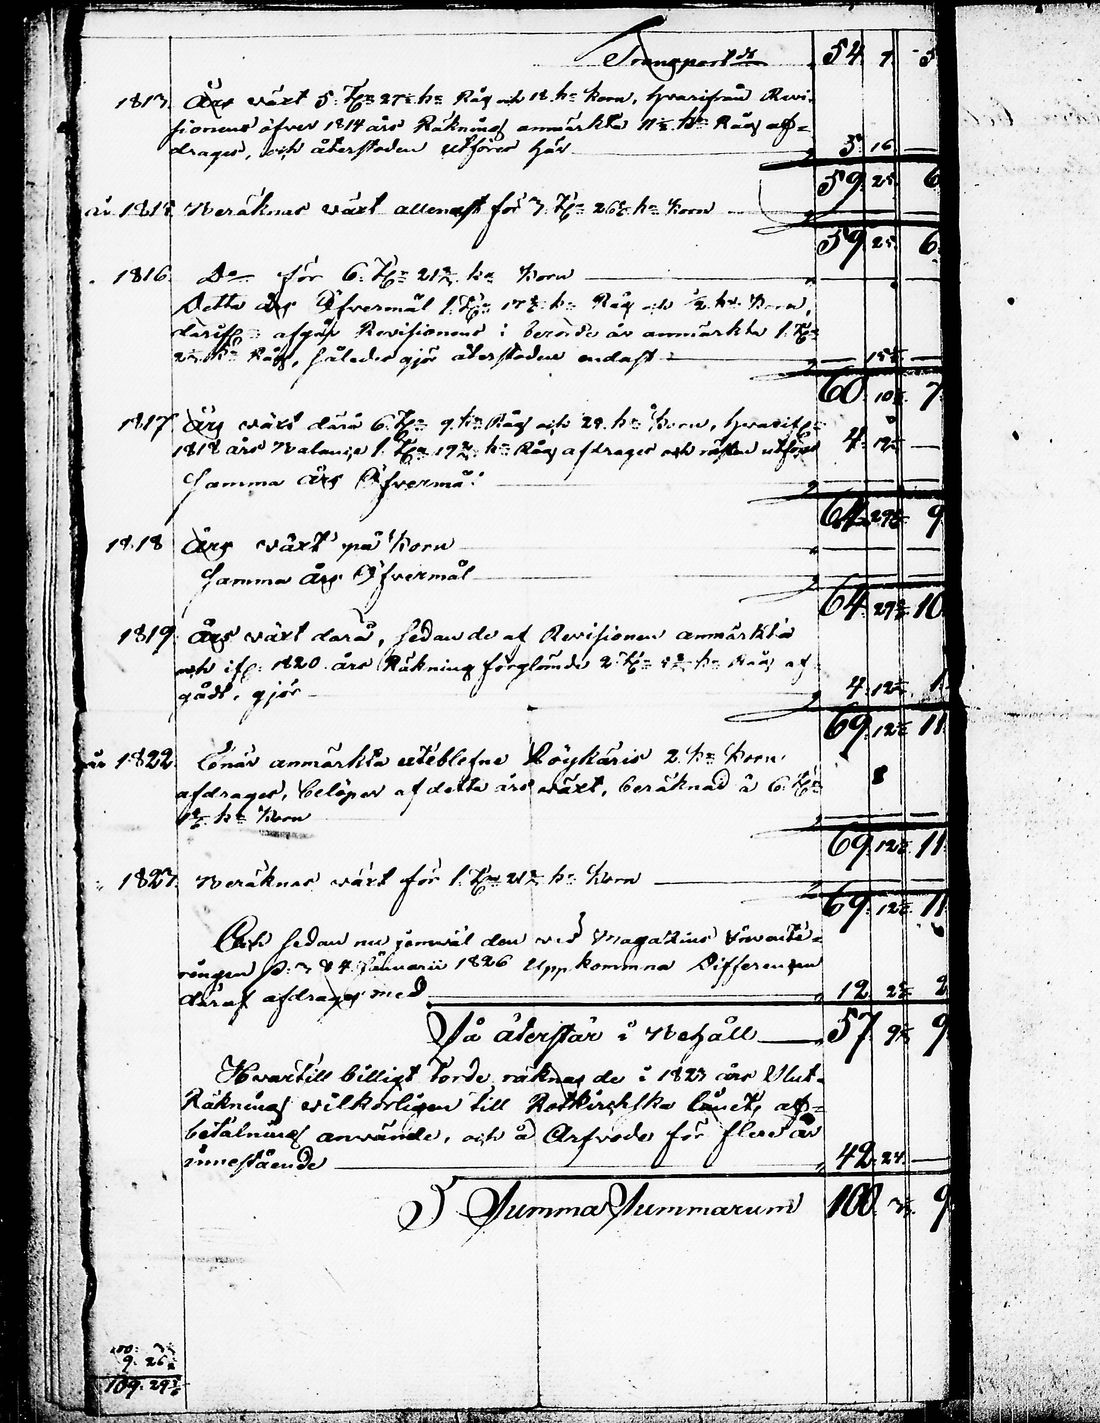 Transport 54 7 5
1813. Års växt 5. T:r 27 k:r Råg och 18. k:r Korn, hvarifrån Revi-
sionens öfver 1814 års Räkning anmärkta 11½ k:r Råg af-
drages, och återstoden utföres här 5 16 —
59 25 6
1815. Beräknas växt allenast för 7. T:r 26½ k:r Korn
59 25 6
1816. D:o för 6. T:r 21½ k:r Korn
Detta års Öfvermål 1. T:r 17½ k:r Råg och ½ k:r Korn,
afgår Revisionens i anmärkta 1. T:r
2½ k:r Råg, således gör återstoden endast — 15½
60 10½ 7
1817. Års växt 6. T:r 9. k:r Råg och 29. k:r Korn, hvarif:n
1818 års Balance 1. T:r 19½ k:r Råg afdrages och resten utföres 4 12½ —
Samma års Öfvermål
64 29½ 9
1818 Års växt på Korn
Samma års Öfvermål
64 29½ 10
1819. Års växt, sedan de af Revisionen anmärkta
och 1820 års Räkning förglömde 2. T:r k:r Råg af-
gådt, gjör 4 12½ 1
69 12½ 11
1822. anmärkta uteblefne Röykäris 2. k:r Korn
afdrages, belöper af detta års växt, beräknad à 6. T:r 8
1½ k:r Korn
69 12½ 11
1823. Beräknas växt för 1. T:r 21½ k:r Korn
69 12½ 11
Och sedan nu jemväl den vid Magazins Invente-
ringen Januarii 1826 Uppkomna Differencen
däraf afdrages med 12 2½ 2
Så återstår i Behåll 57 9½ 9
Hvartill billigt torde räknas de i 1823 års Slut-
Räkning wilkorligen till Rotkirchska lånets af-
betalning använde, och à Arfvode för flere år
innestående 42 24 —
Summa Summarum 100 9
9. 26½
109. 29½